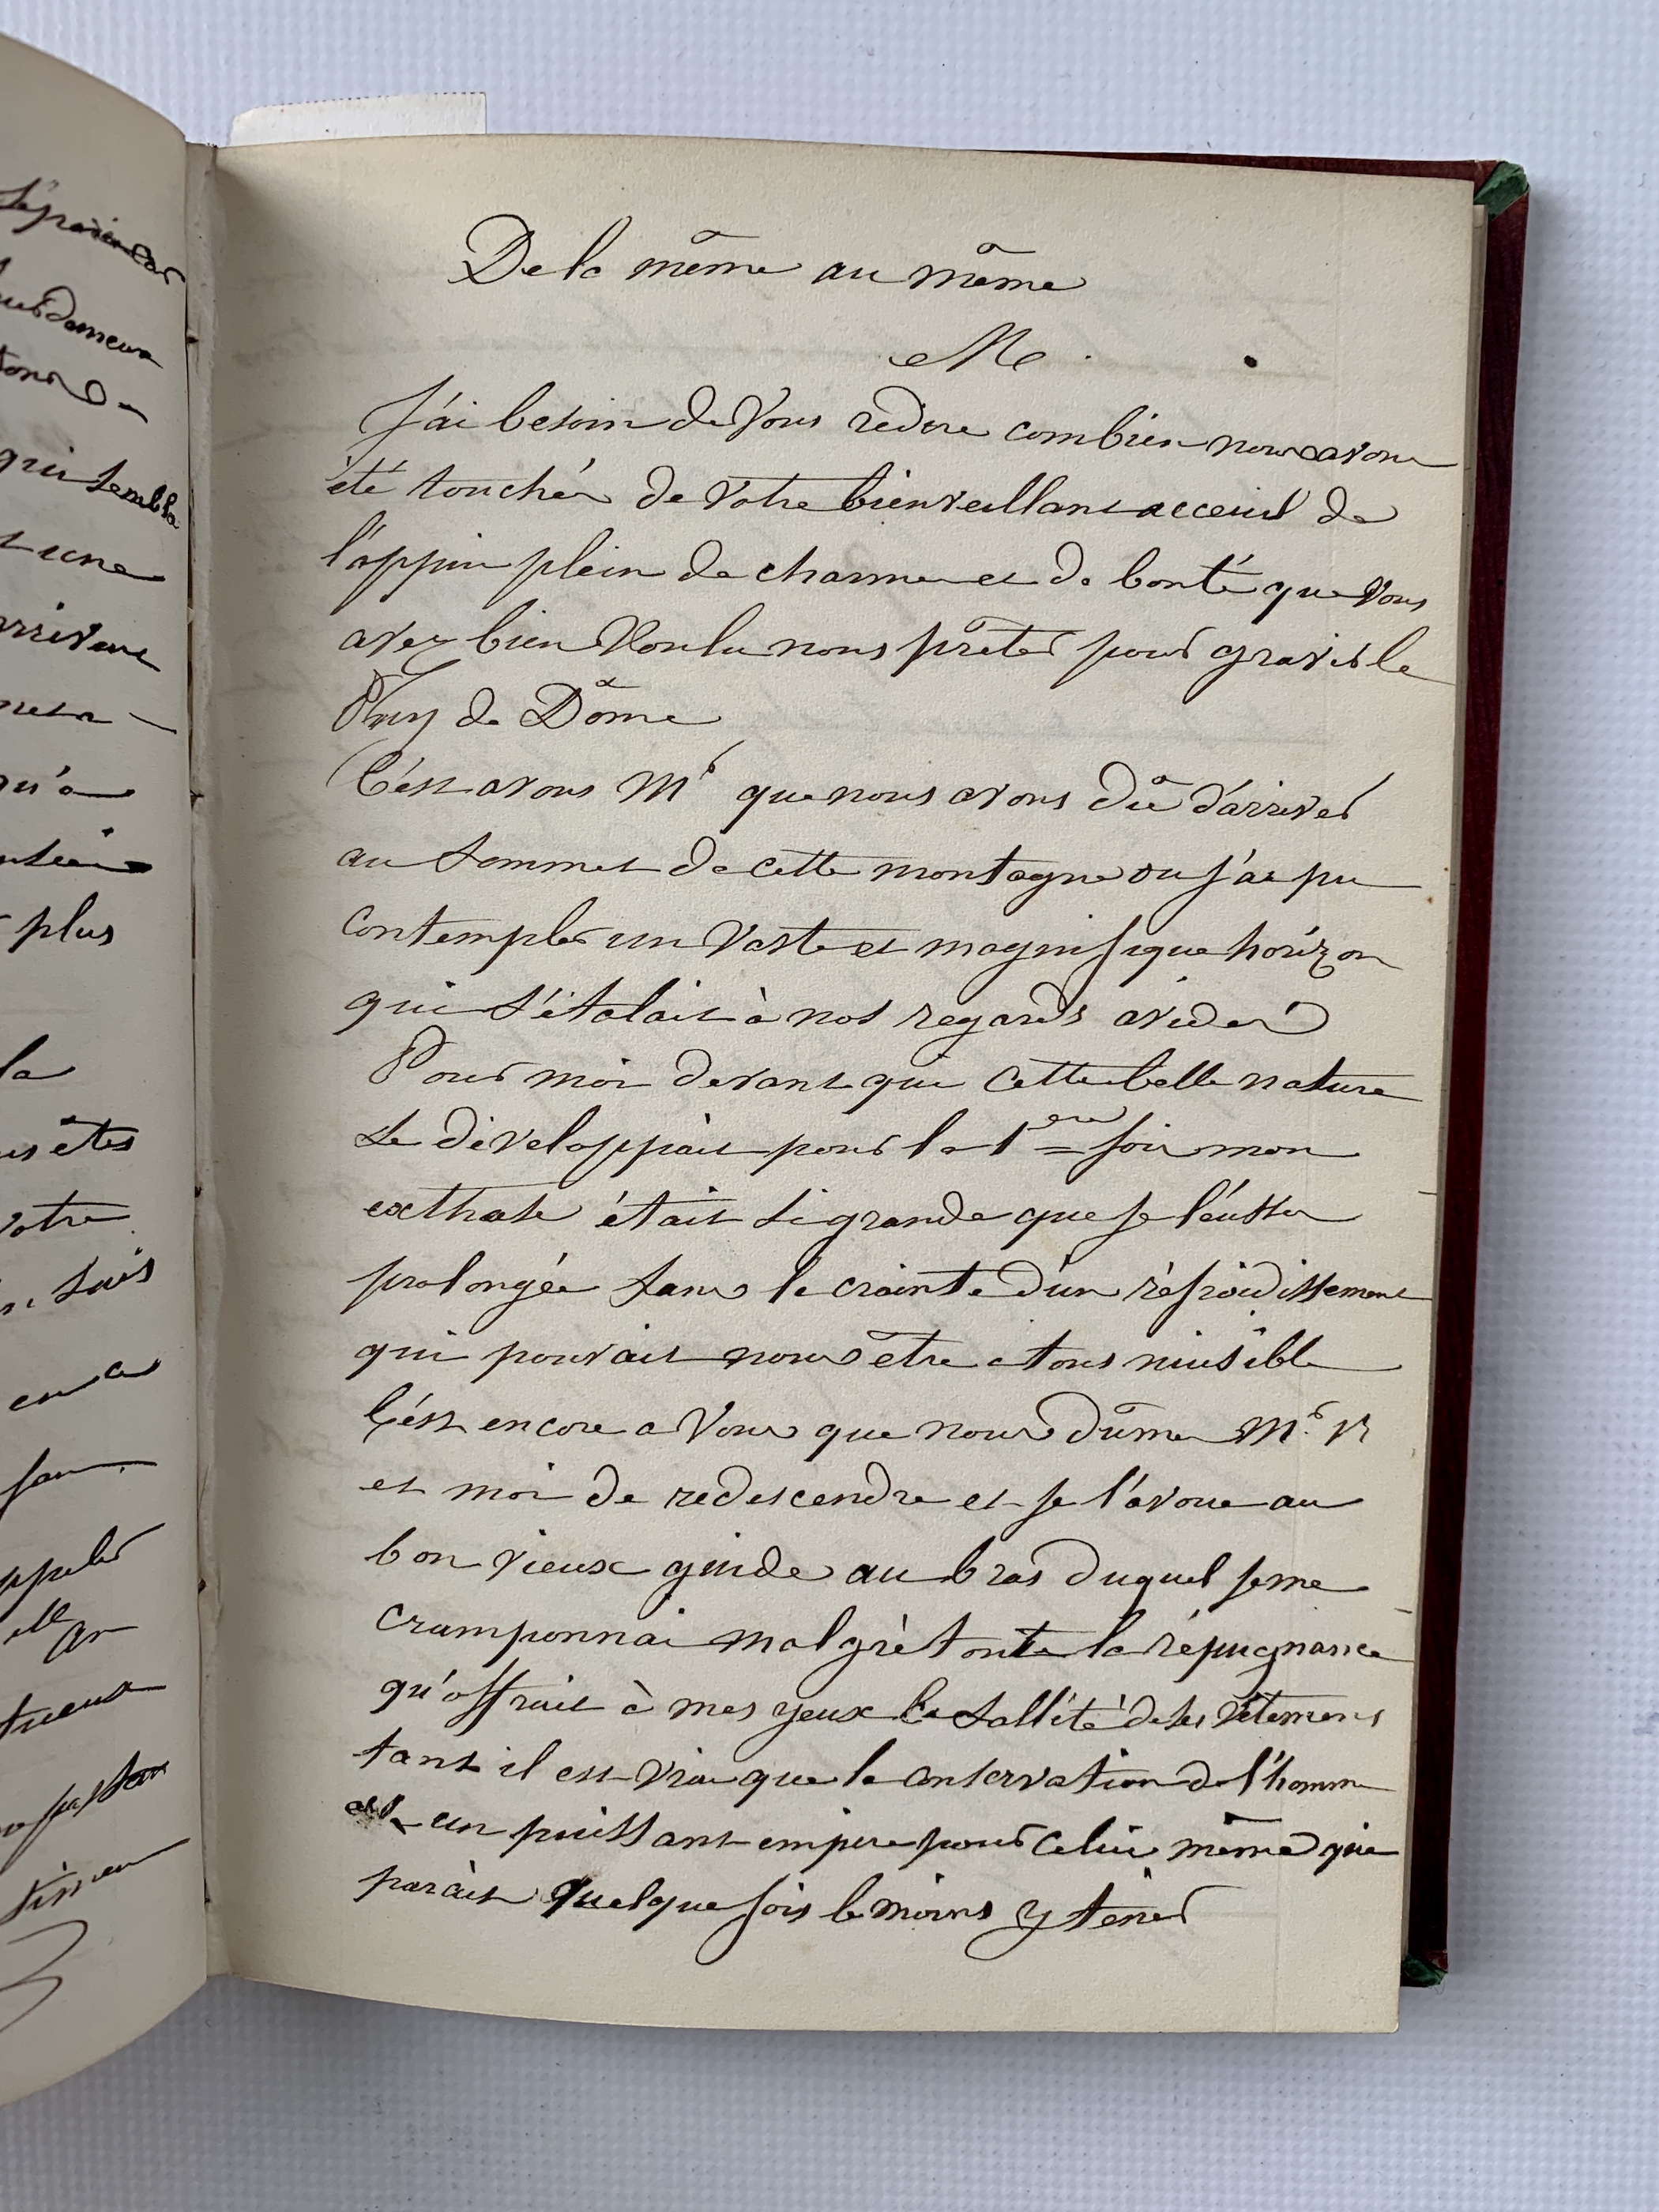 De la même au même
M.
J'ai besoin de Vous redire combien nous avons
été touchés de votre bienveillant acceuil de
l'appui plein de charme et de bonté que Vous
avez bien Voulu nous prêter pour gravir le
Puy de Dôme
C'est avous Mr que nous avons dû d'arriver
au sommet de cette montagne ou j'ai pu
contempler un Vaste et magnifique horizon
qui s'étalait à nos regards avides
Pour moi devant qui cette belle nature
se développait pour la 1ere fois mon
exthase était si grande que je l'eusse
prolongée sans la crainte d'un réfroidissement
qui pouvait nous être a tous nuisible
C'est encore a Vous que nous dûmes Mr. R
et moi de redescendre et je l'avoue au
bon vieux guide au bras duquel je me
cramponnai malgrè toute la répugnance
qu'offrait à mes yeux la salleté de ses vêtemens
tant il est vrai que la conservation de l'homme
est un puissant empire pour celui même qui
parait quelque fois le moins y tenir
plus
la
votre
sais